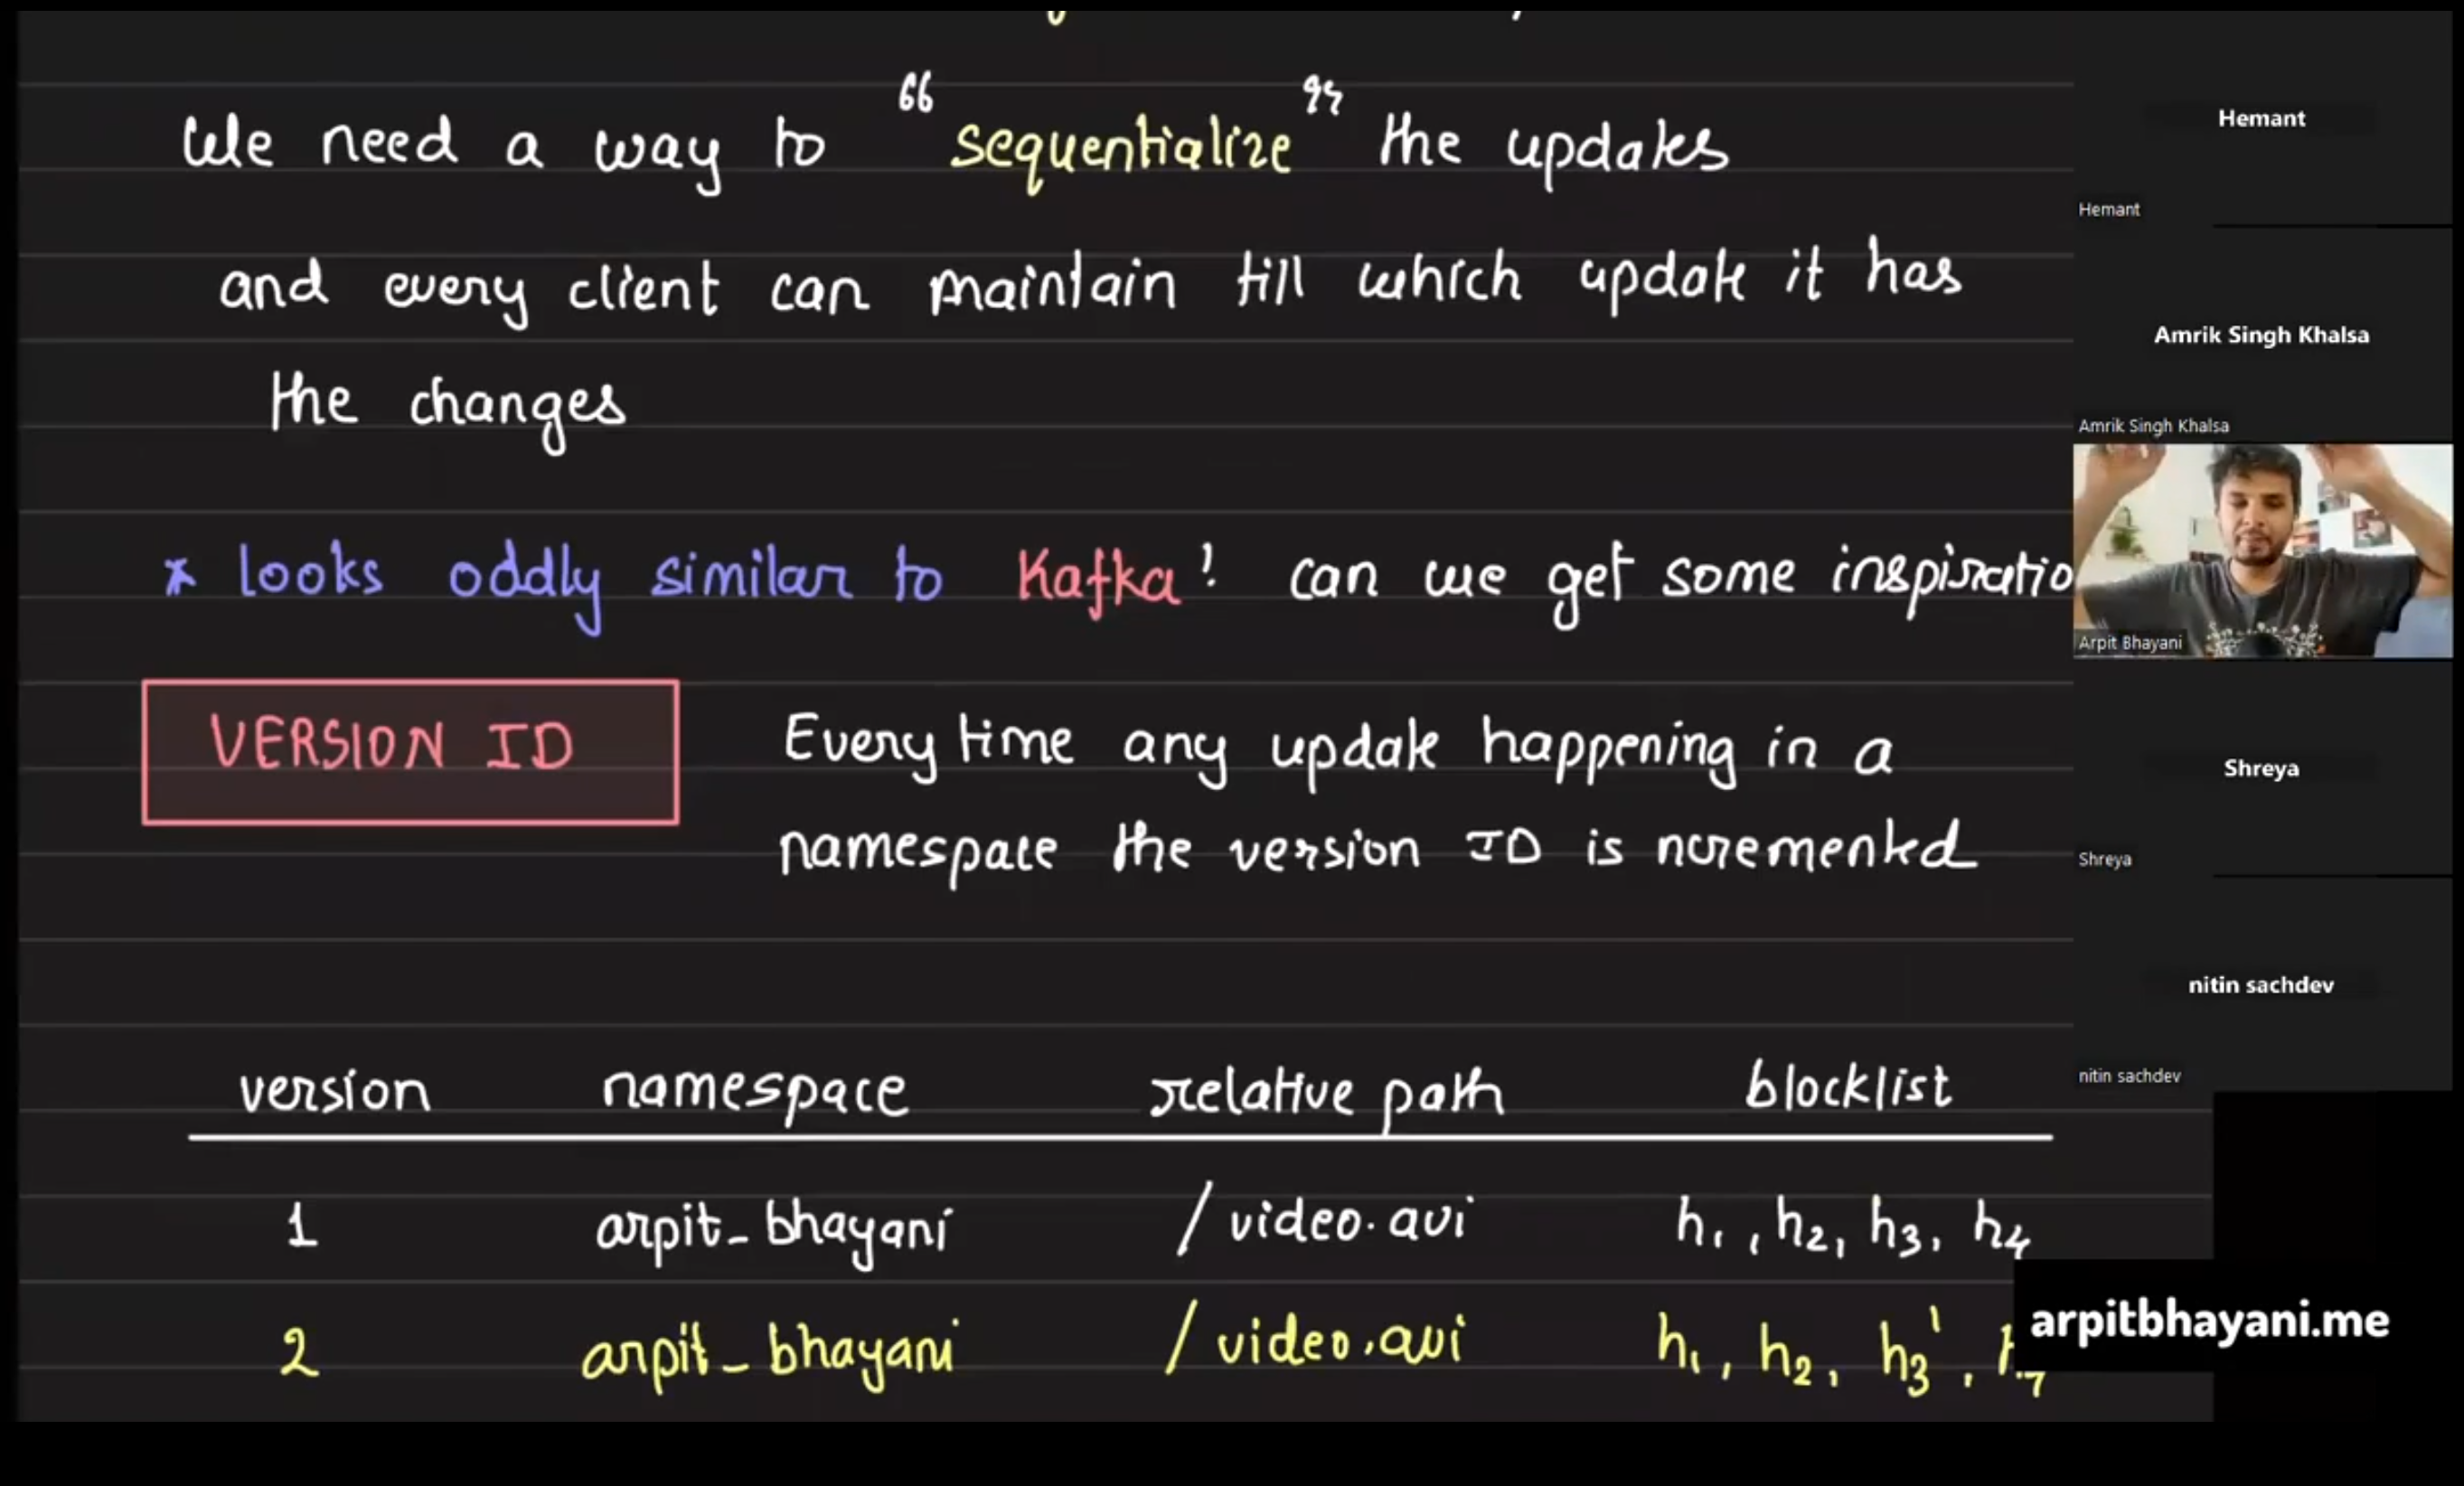 We need a way to "sequentialize" the updates
and every client can maintain till which update it has
the changes
* looks oddly similar to Kafka! can we get some inspiratio
VERSION ID
Every time any update happening in a
namespace the version ID is ncremented
version namespace relative path blocklist
1 arpit_bhayani /video.avi h1, h2, h3, h4
2 arpit_bhayani /video.avi h1, h2, h3',
Hemant
Hemant
Amrik Singh Khalsa
Amrik Singh Khalsa
Arpit Bhayani
Shreya
Shreya
nitin sachdev
nitin sachdev
arpitbhayani.me